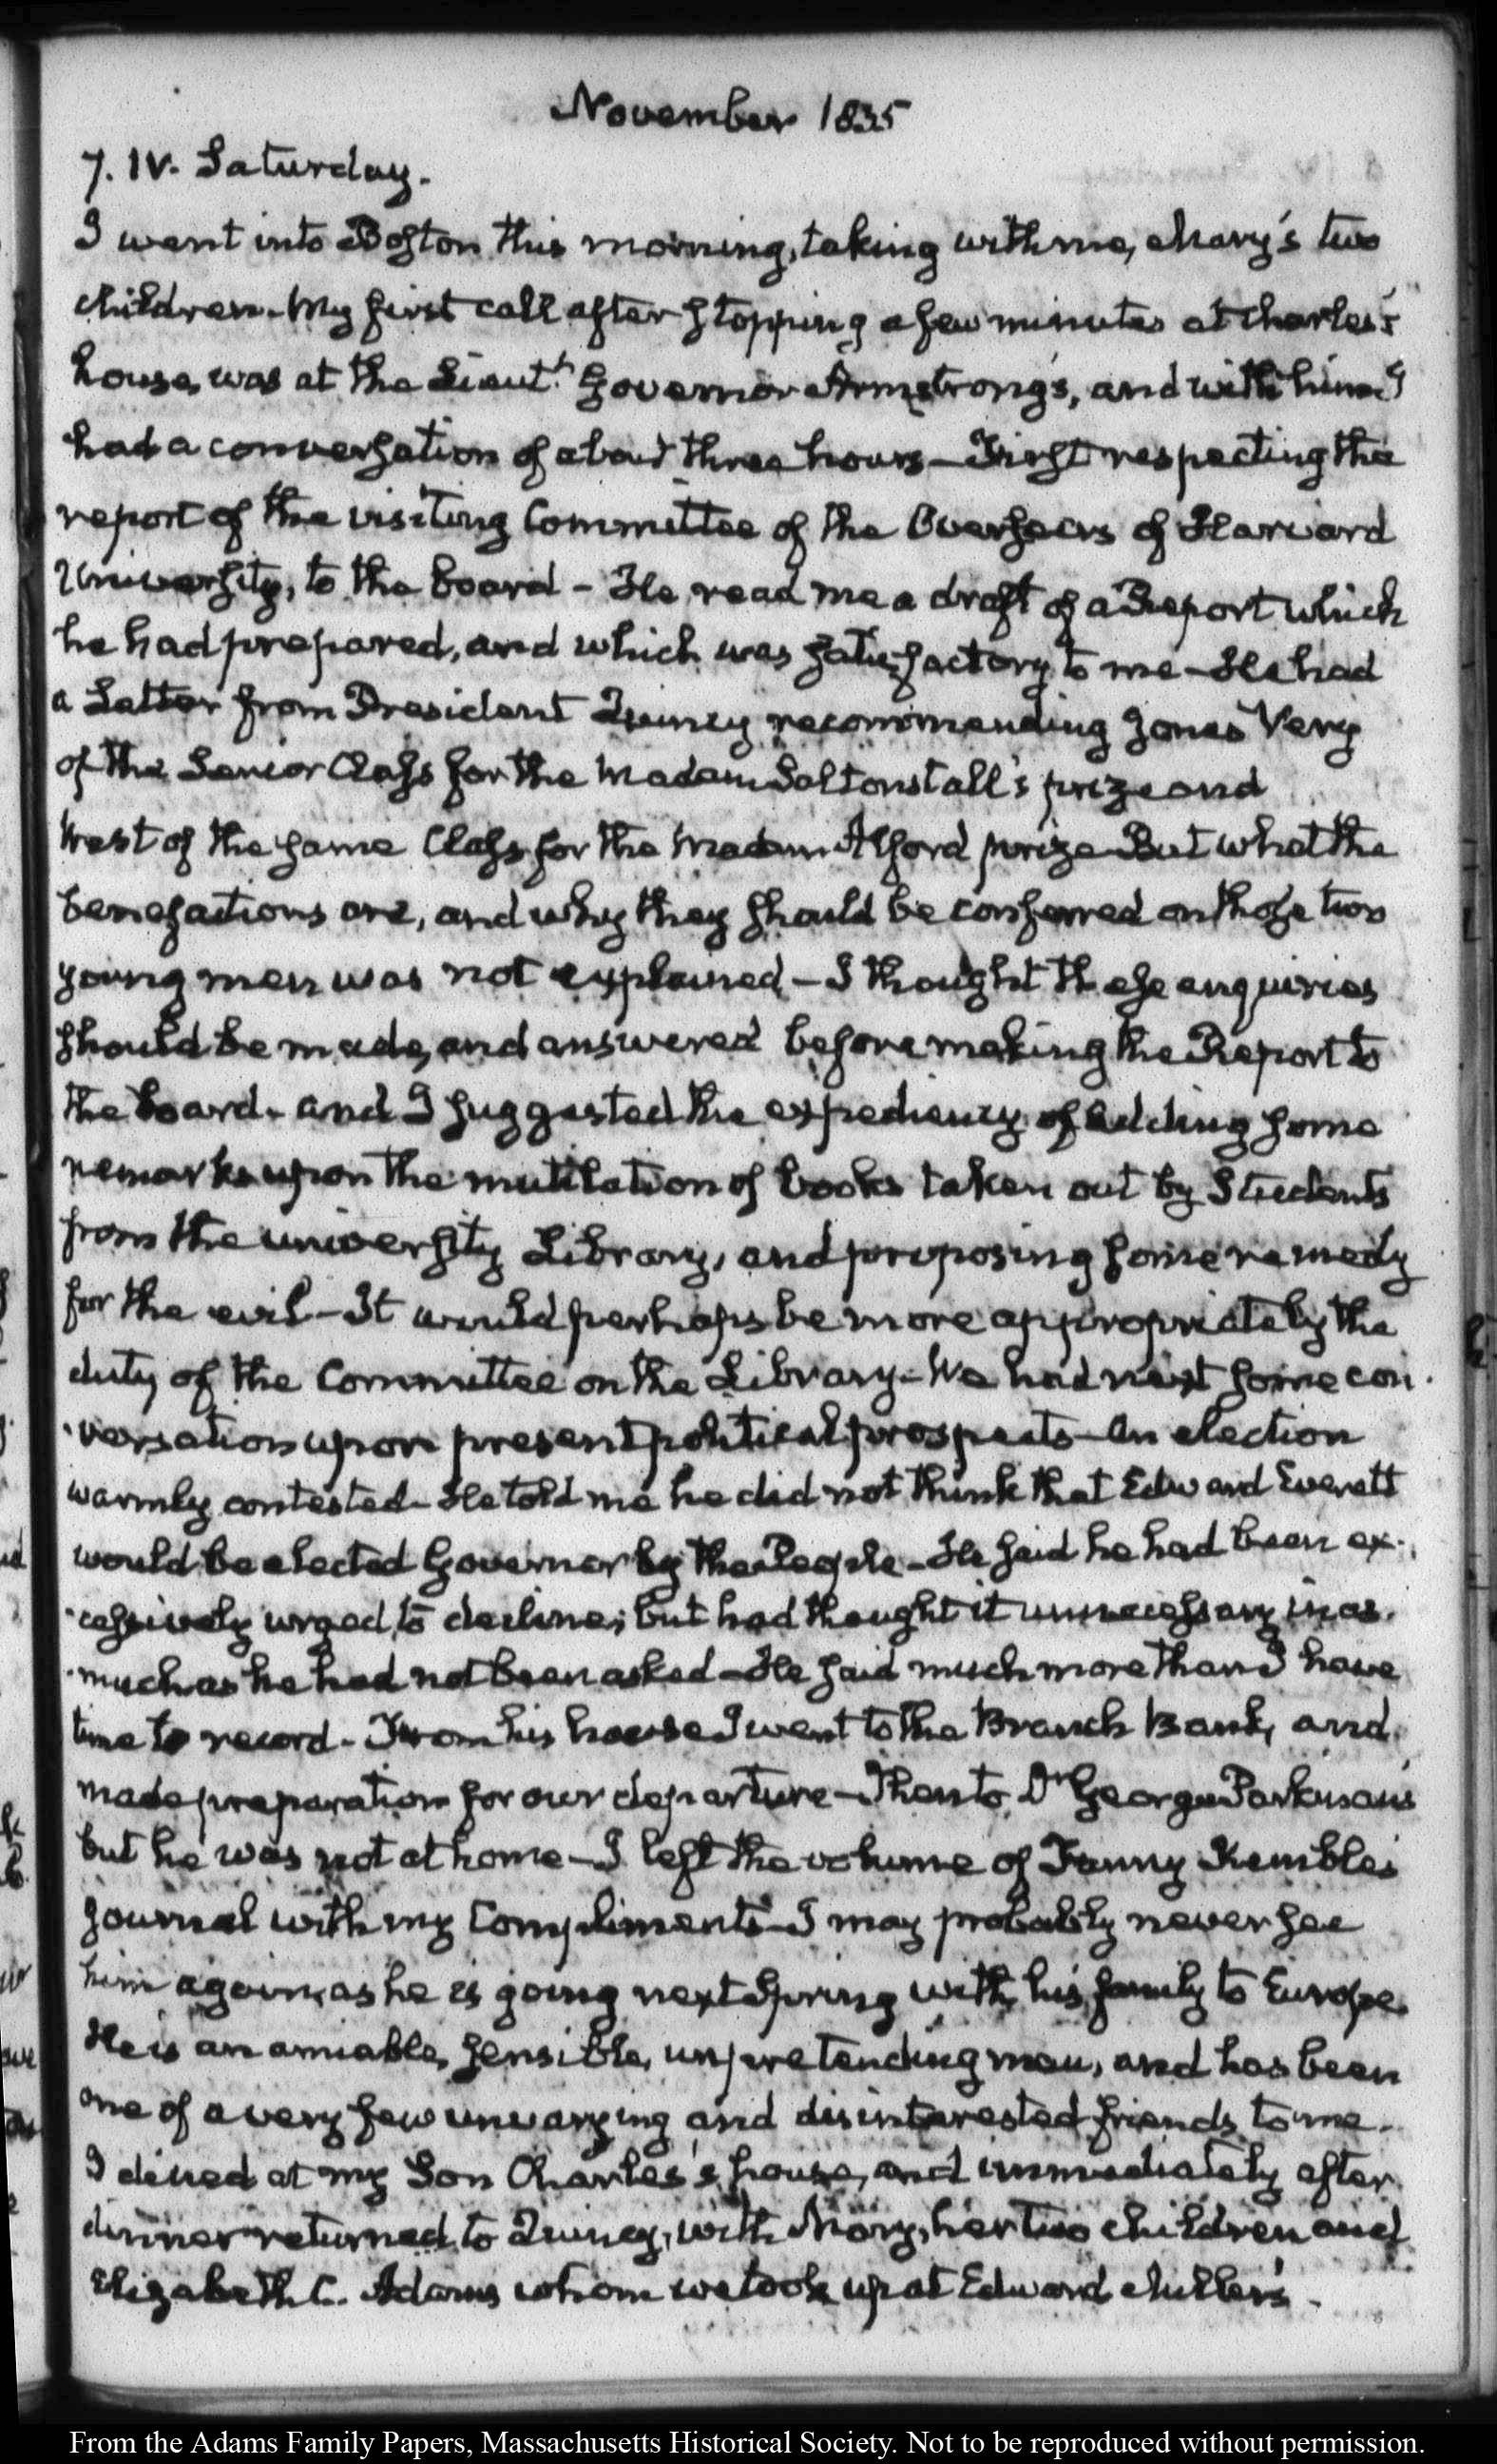 November 1835
7. IV. Saturday.
I went into Boston this morning, taking with me, Mary's two
children. My first call after stopping a few minutes at Charles's
house, was at the Lieut.t Governor Armstrong's, and with him I
had a conversation of about three hours — First respecting the
report of the visiting Committee of the Overseers of Harvard
University, to the board - He read me a draft of a Report which
he had prepared, and which was satisfactory to me - He had
a Letter from President Quincy recommending Jones Very
of the Senior Class for the Madam Saltonstall's prize and
West of the same Class for the Madam Alford prize. But what the
benefactions are, and why they should be conferred on those two
young men was not explained - I thought these enquiries
should be made, and answered before making the Report to
the board. and I suggested the expediency of adding some
remarks upon the mutilation of books taken out by Students
from the university Library, and proposing some remedy
for the evil - It would perhaps be more appropriately the
duty of the Committee on the Library - We had next some con-
-versation upon present political prospects - An election
warmly contested - He told me he did not think that Edward Everett
would be elected Governor by the People - He said he had been ex-
-cessively urged to decline; but had thought it unnecessary inas-
-much as he had not been asked - He said much more than I have
time to record - From his house I went to the Branch Bank, and
made preparation for our departure - Then to Dr George Parkman's
but he was not at home - I left the volume of Fanny Kemble's
Journal with my Compliments - I may probably never see
him again, as he is going next Spring with his family to Europe.
He is an amiable, sensible, unpretending man, and has been
one of a very few unvarying and disinterested friends to me.
I dined at my Son Charles's house, and immediately after
dinner returned to Quincy, with Mary, her two children and
Elizabeth C. Adams whom we took up at Edward Miller's -
From the Adams Family Papers, Massachusetts Historical Society. Not to be reproduced without permission.